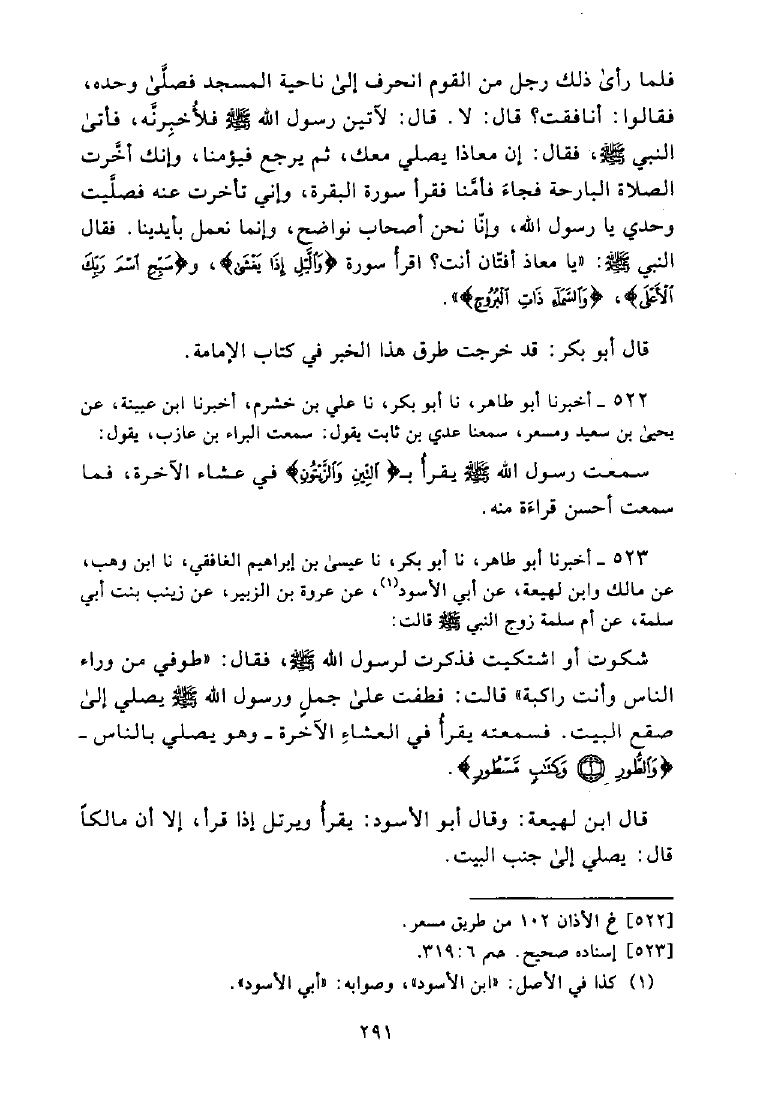 فلما رأىٰ ذلك رجل من القوم انحرف إلىٰ ناحية المسجد فصلَّىٰ وحده،
فقالوا: أنافقت؟ قال: لا. قال: لآتين رسول الله ﷺ فلأُخبِرنَّه، فأتىٰ
النبي ﷺ، فقال: إن معاذا يصلي معك، ثم يرجع فيؤمنا، وإنك أخَّرت
الصلاة البارحة فجاءَ فأمَّنا فقرأ سورة البقرة، وإني تأخرت عنه فصلَّيت
وحدي يا رسول الله، وإنّا نحن أصحاب نواضح، وإنما نعمل بأيدينا. فقال
النبي ﷺ: «يا معاذ أفتّان أنت؟ اقرأ سورة ﴿وَٱلَّيْلِ إِذَا يَغْشَىٰ﴾، و﴿سَبِّحِ ٱسْمَ رَبِّكَ
ٱلْأَعْلَى﴾، ﴿وَٱلسَّمَآءِ ذَاتِ ٱلْبُرُوجِ﴾».
قال أبو بكر: قد خرجت طرق هذا الخبر في كتاب الإمامة.
٥٢٢ ـ أخبرنا أبو طاهر، نا أبو بكر، نا علي بن خشرم، أخبرنا ابن عيينة، عن
يحيىٰ بن سعيد ومسعر، سمعنا عدي بن ثابت يقول: سمعت البراء بن عازب، يقول:
سمعت رسول الله ﷺ يقرأُ بـ﴿ٱلتِّينِ وَٱلزَّيْتُونِ﴾ في عشاء الآخرة، فما
سمعت أحسن قراءَة منه.
٥٢٣ ـ أخبرنا أبو طاهر، نا أبو بكر، نا عيسىٰ بن إبراهيم الغافقي، نا ابن وهب،
عن مالك وابن لهيعة، عن أبي الأسود(١)، عن عروة بن الزبير، عن زينب بنت أبي
سلمة، عن أم سلمة زوج النبي ﷺ قالت:
شكوت أو اشتكيت فذكرت لرسول الله ﷺ، فقال: «طوفي من وراء
الناس وأنت راكبة» قالت: فطفت علىٰ جملٍ ورسول الله ﷺ يصلي إلىٰ
صقع البيت. فسمعته يقرأُ في العشاءِ الآخرة ـ وهو يصلي بالناس ـ
﴿وَٱلطُّورِ ۝١ وَكِتَٰبٍ مَّسْطُورٍ﴾.
قال ابن لهيعة: وقال أبو الأسود: يقرأُ ويرتل إذا قرأ، إلا أن مالكاً
قال: يصلي إلىٰ جنب البيت.
[٥٢٢] خ الأذان ١٠٢ من طريق مسعر.
[٥٢٣] إسناده صحيح. حم ٦:٣١٩.
(١) كذا في الأصل: «ابن الأسود»، وصوابه: «أبي الأسود».
٢٩١